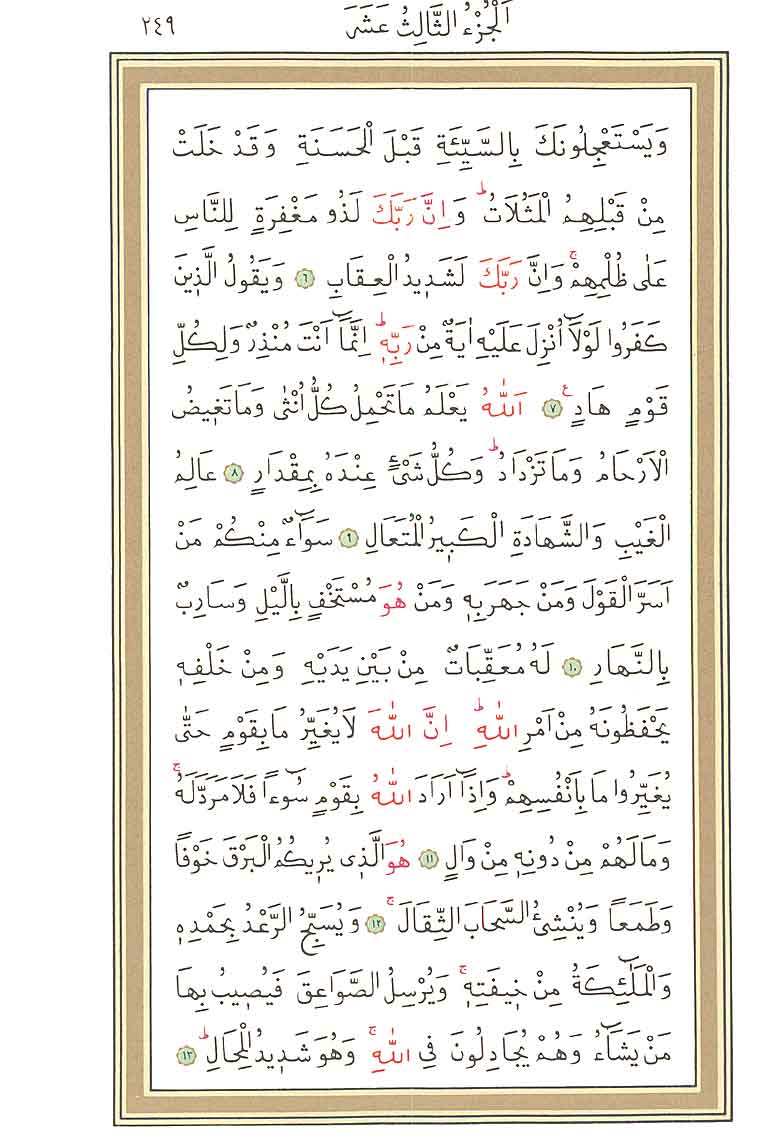 اَلْجُزْءُ الثَّالِثُ عَشَرَ
٢٤٩
وَيَسْتَعْجِلُونَكَ بِالسَّيِّئَةِ قَبْلَ الْحَسَنَةِ وَقَدْ خَلَتْ
مِنْ قَبْلِهِمُ الْمَثُلَاتُۜ وَاِنَّ رَبَّكَ لَذُو مَغْفِرَةٍ لِلنَّاسِ
عَلٰى ظُلْمِهِمْۚ وَاِنَّ رَبَّكَ لَشَد۪يدُ الْعِقَابِ ﴿٦﴾ وَيَقُولُ الَّذ۪ينَ
كَفَرُوا لَوْلَٓا اُنْزِلَ عَلَيْهِ اٰيَةٌ مِنْ رَبِّه۪ۜ اِنَّمَٓا اَنْتَ مُنْذِرٌ وَلِكُلِّ
قَوْمٍ هَادٍ۟ ﴿٧﴾ اَللّٰهُ يَعْلَمُ مَا تَحْمِلُ كُلُّ اُنْثٰى وَمَا تَغ۪يضُ
الْاَرْحَامُ وَمَا تَزْدَادُۜ وَكُلُّ شَيْءٍ عِنْدَهُ بِمِقْدَارٍ ﴿٨﴾ عَالِمُ
الْغَيْبِ وَالشَّهَادَةِ الْكَب۪يرُ الْمُتَعَالِ ﴿٩﴾ سَوَٓاءٌ مِنْكُمْ مَنْ
اَسَرَّ الْقَوْلَ وَمَنْ جَهَرَ بِه۪ وَمَنْ هُوَ مُسْتَخْفٍ بِالَّيْلِ وَسَارِبٌ
بِالنَّهَارِ ﴿١٠﴾ لَهُ مُعَقِّبَاتٌ مِنْ بَيْنِ يَدَيْهِ وَمِنْ خَلْفِه۪
يَحْفَظُونَهُ مِنْ اَمْرِ اللّٰهِۜ اِنَّ اللّٰهَ لَا يُغَيِّرُ مَا بِقَوْمٍ حَتّٰى
يُغَيِّرُوا مَا بِاَنْفُسِهِمْۜ وَاِذَٓا اَرَادَ اللّٰهُ بِقَوْمٍ سُٓوءاً فَلَا مَرَدَّ لَهُۚ
وَمَا لَهُمْ مِنْ دُونِه۪ مِنْ وَالٍ ﴿١١﴾ هُوَ الَّذ۪ي يُر۪يكُمُ الْبَرْقَ خَوْفاً
وَطَمَعاً وَيُنْشِئُ السَّحَابَ الثِّقَالَۚ ﴿١٢﴾ وَيُسَبِّحُ الرَّعْدُ بِحَمْدِه۪
وَالْمَلٰٓئِكَةُ مِنْ خ۪يفَتِه۪ۚ وَيُرْسِلُ الصَّوَاعِقَ فَيُص۪يبُ بِهَا
مَنْ يَشَٓاءُ وَهُمْ يُجَادِلُونَ فِي اللّٰهِۚ وَهُوَ شَد۪يدُ الْمِحَالِۜ ﴿١٣﴾